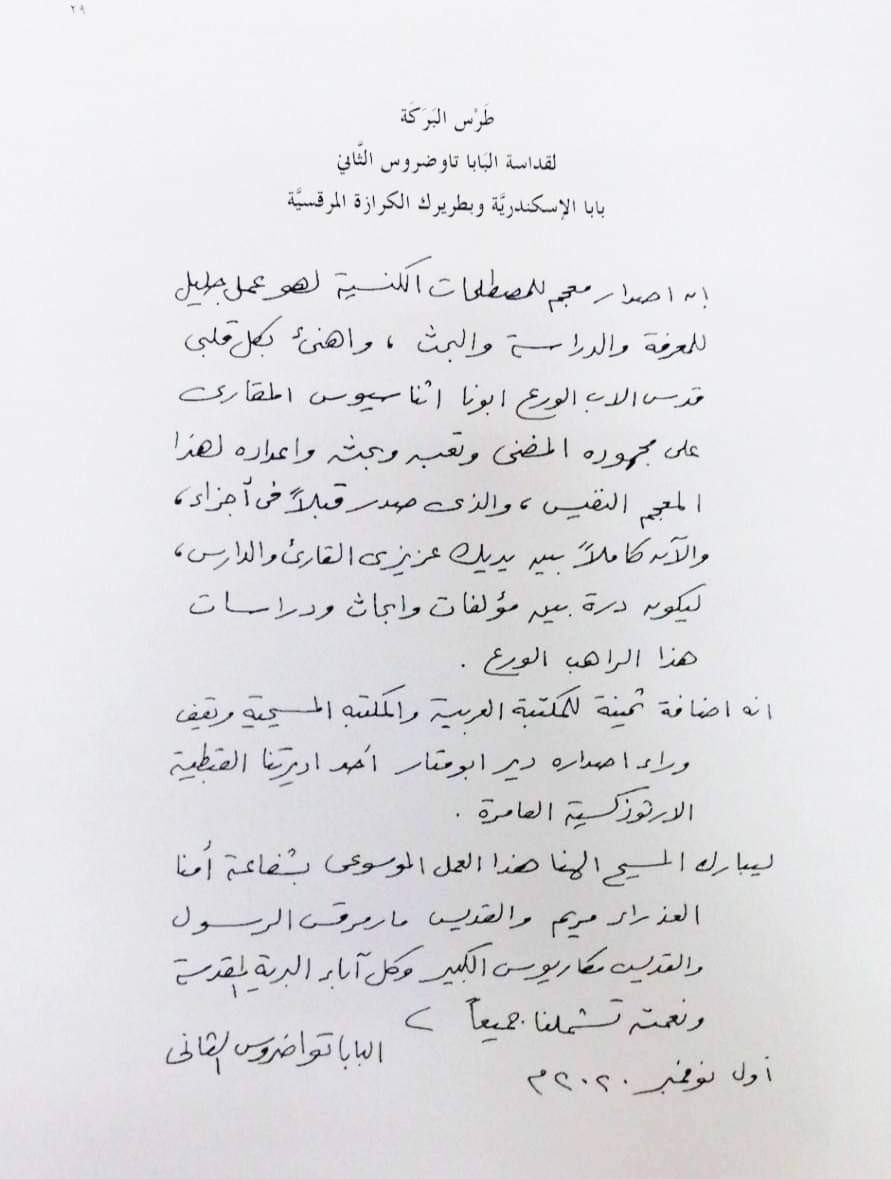 ٢٩
طَرْس البَرَكَة
لقداسة البَابا تاوضروس الثَّاني
بابا الإسكندريَّة وبطريرك الكرازة المرقسيَّة
إن اصدار معجم للمصطلحات الكنسية لهو عمل جليل
للمعرفة والدراسة والبحث ، واهنئ بكل قلبى
قدس الاب الورع ابونا اثناسيوس المقارى
على مجهوده المضنى وتعبه وبحثه واعداده لهذا
المعجم النفيس ، والذى صدر قبلاً فى أجزاء ،
والآن كاملاً بين يديك عزيزى القارئ والدارس ،
ليكون درة بين مؤلفات وابحاث ودراسات
هذا الراهب الورع .
انه اضافة ثمينة للمكتبة العربية والمكتبه المسيحية ويقف
وراء اصداره دير ابومقار أحد اديرتنا القبطية
الارثوذكسية العامرة .
ليبارك المسيح الهنا هذا العمل الموسوعى بشفاعة أمنا
العذراء مريم والقديس مارمرقس الرسول
والقديس مكاريوس الكبير وكل آباء البرية المقدسة
ونعمته تشملنا جميعاً
البابا تواضروس الثانى
أول نوفمبر ٢٠٢٠م